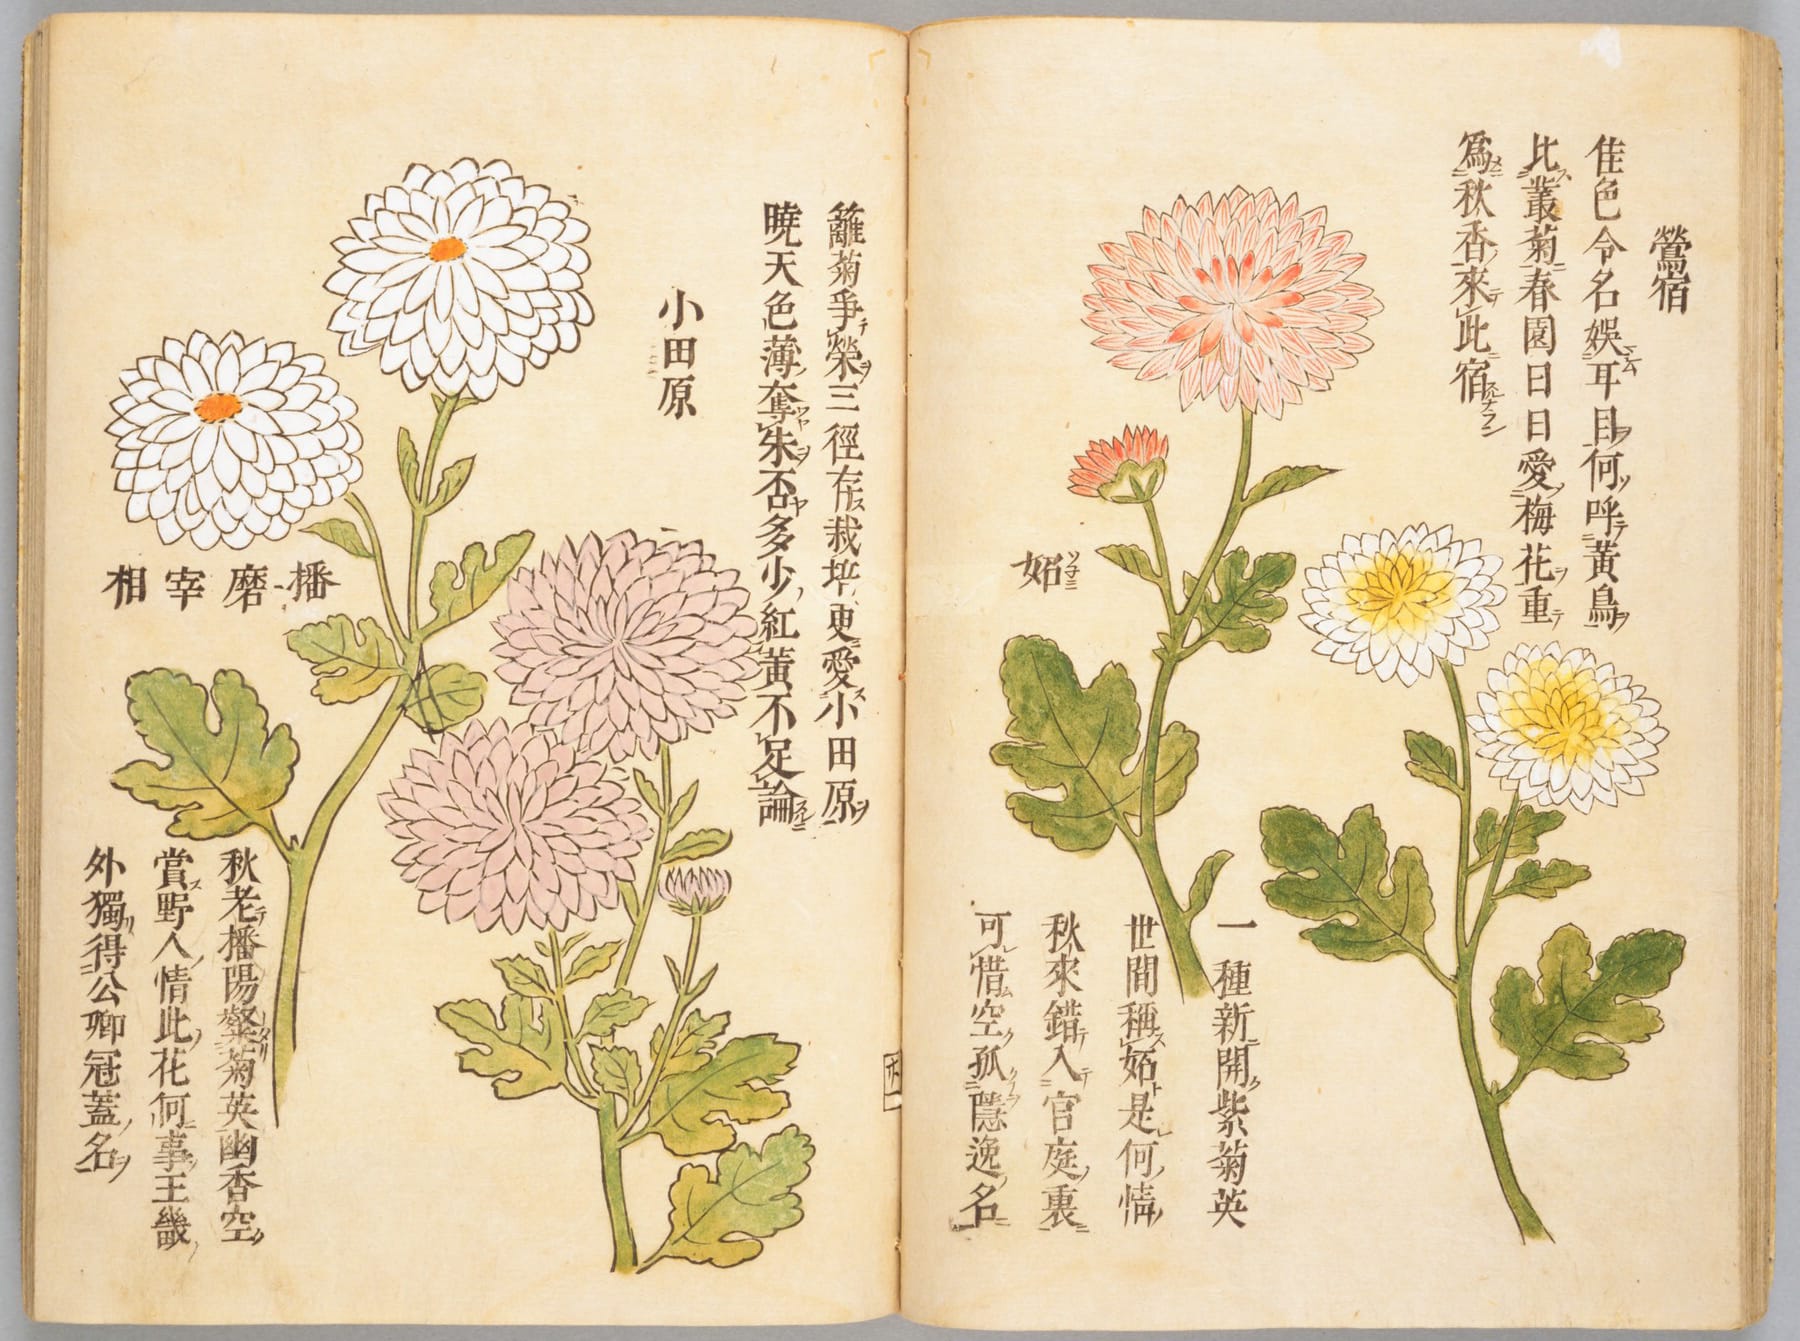 鶯宿
佳色令名娛耳目何呼黃鳥
比叢菊春園日日愛梅花重
爲秋香來此宿
妬
一種新開紫菊英
世間稱妬是何情
秋來錯入官庭裏
可惜空孤隱逸名
籬菊爭榮三徑存栽培更愛小田原
曉天色薄奪朱否多少紅黃不足論
小田原
播磨宰相
秋老播陽粲菊英幽香空
賞野人情此花何事王畿
外獨得公卿冠蓋名